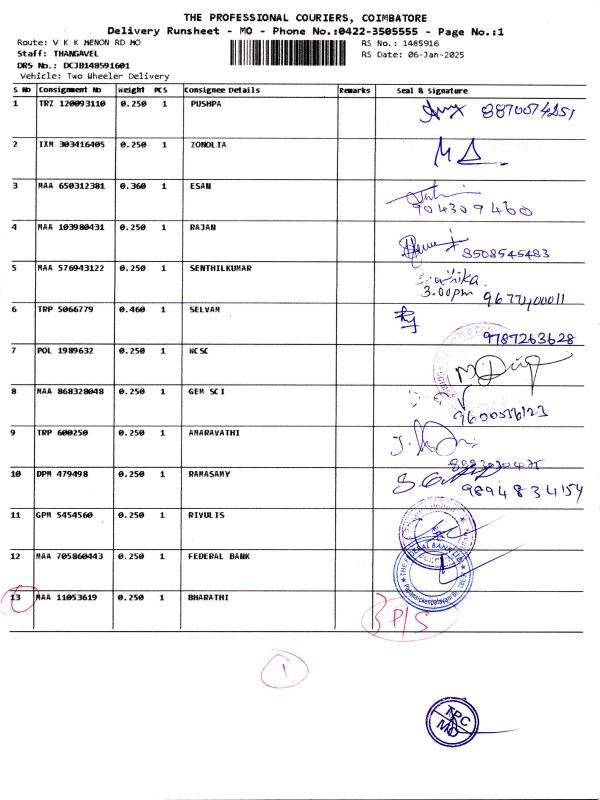 THE PROFESSIONAL COURIERS, COIMBATORE
Delivery Runsheet - MO - Phone No.:0422-3505555 - Page No.:1
Route: V K K MENON RD MO
RS No.: 1485916
Staff: THANGAVEL
RS Date: 06-Jan-2025
DRS No.: DCJB148591601
Vehicle: Two Wheeler Delivery
S No Consignment No Weight PCS Consignee Details Remarks Seal & Signature
1 TRZ 120093110 0.250 1 PUSHPA
2 IXM 303416405 0.250 1 ZONOLIA
3 MAA 650312381 0.360 1 ESAN
904309460
4 MAA 103980431 0.250 1 RAJAN
8508545483
5 MAA 576943122 0.250 1 SENTHILKUMAR
3.00pm
6 TRP 5066779 0.460 1 SELVAM
9787263628
7 POL 1989632 0.250 1 WCSC
8 MAA 868328048 0.250 1 GEM SCI
9 TRP 600250 0.250 1 AMARAVATHI
10 DPM 479498 0.250 1 RAMASAMY
9894834154
11 GPM 5454560 0.250 1 RIVULIS
12 MAA 705860443 0.250 1 FEDERAL BANK
THE FEDERAL BANK LTD
13 MAA 11053619 0.250 1 BHARATHI
P/S
1
TPC
MO